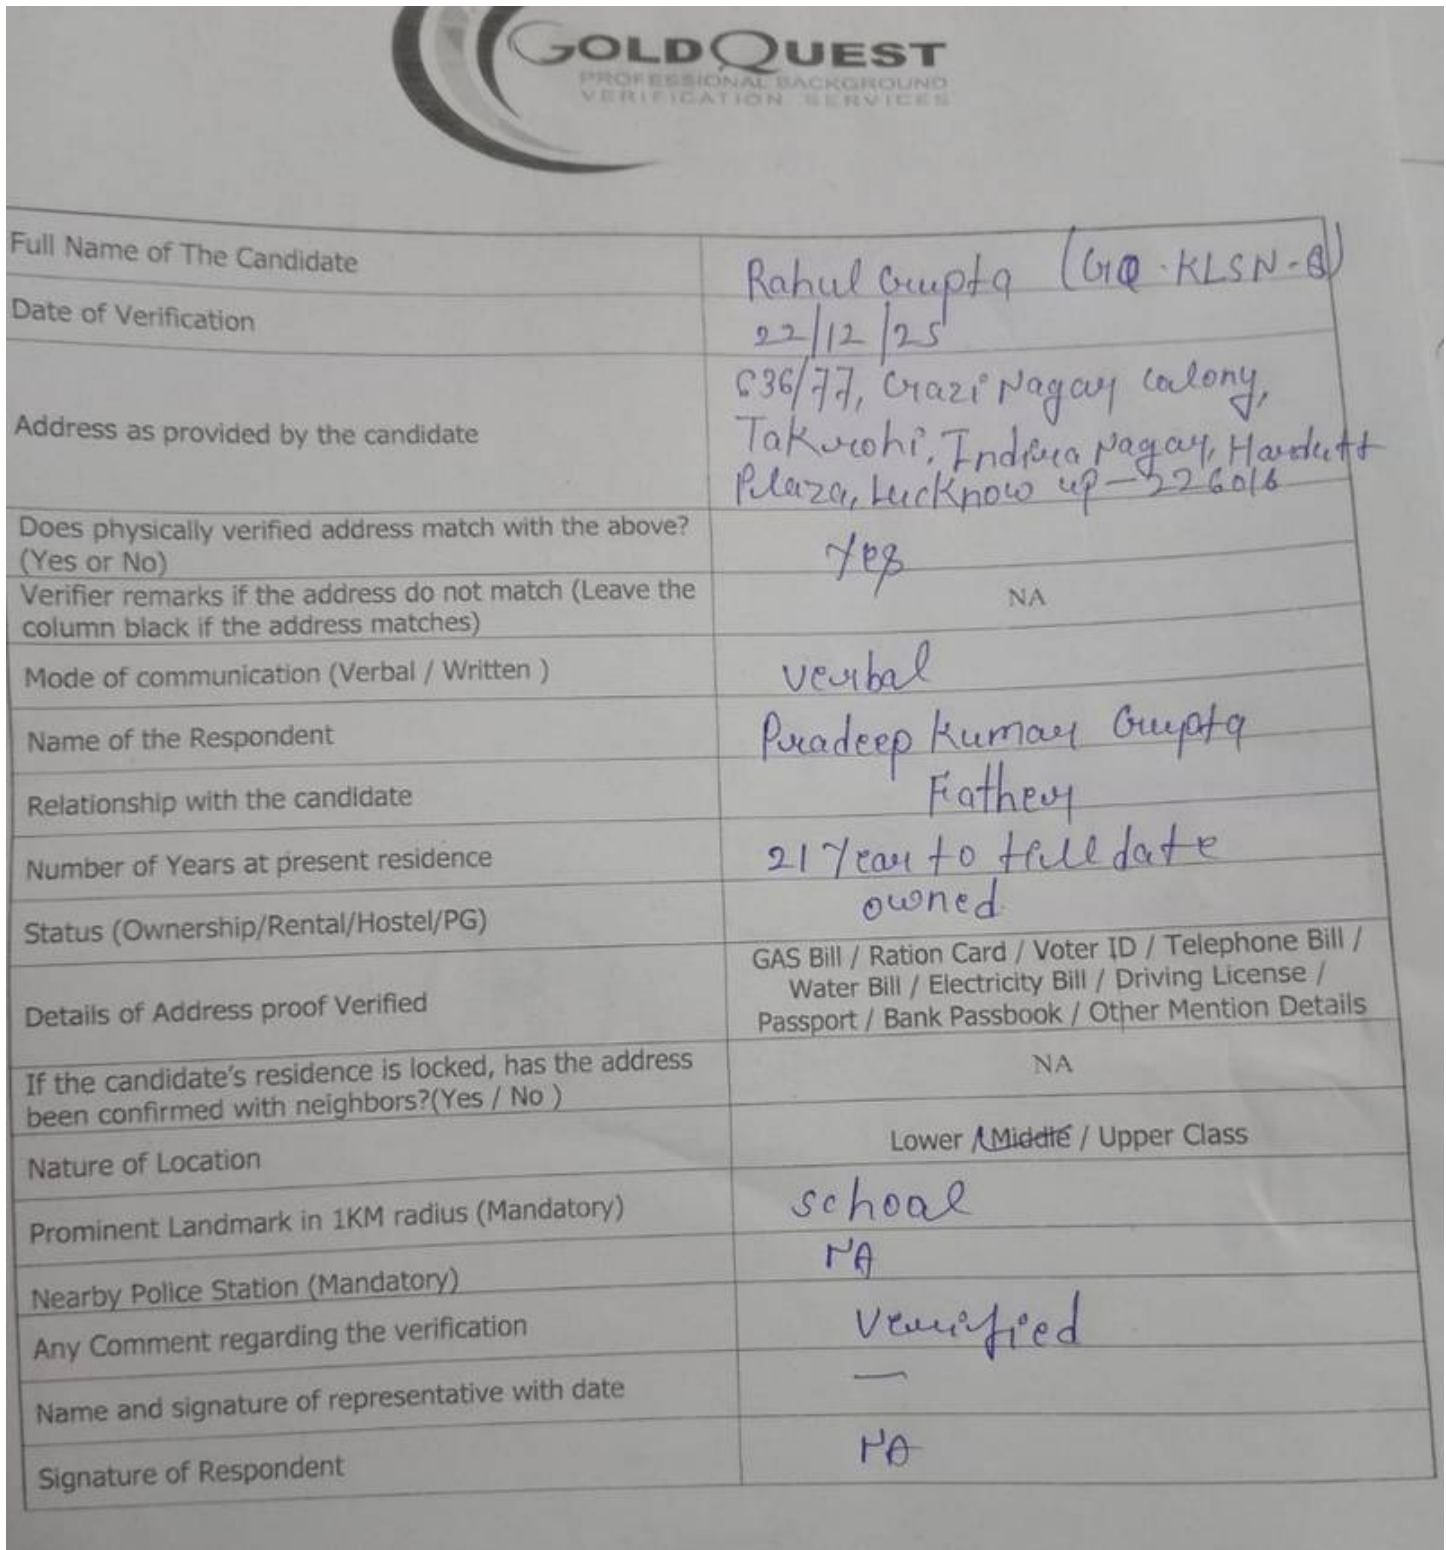 GOLDQUEST
PROFESSIONAL BACKGROUND
VERIFICATION SERVICES
Full Name of The Candidate
Rahul Gupta (GQ-KLSN-
Date of Verification
22/12/25
Address as provided by the candidate
636/77, Gazi Nagar Colony,
Takrohi, Indira Nagar, Hardutt
Plaza, Lucknow up-226016
Does physically verified address match with the above?
(Yes or No)
Yes
Verifier remarks if the address do not match (Leave the
column black if the address matches)
NA
Mode of communication (Verbal / Written )
Verbal
Name of the Respondent
Pradeep Kumar Gupta
Relationship with the candidate
Father
Number of Years at present residence
21 Year to till date
Status (Ownership/Rental/Hostel/PG)
owned
Details of Address proof Verified
GAS Bill / Ration Card / Voter ID / Telephone Bill /
Water Bill / Electricity Bill / Driving License /
Passport / Bank Passbook / Other Mention Details
If the candidate's residence is locked, has the address
been confirmed with neighbors?(Yes / No )
NA
Nature of Location
Lower / Middle / Upper Class
Prominent Landmark in 1KM radius (Mandatory)
school
Nearby Police Station (Mandatory)
NA
Any Comment regarding the verification
Verified
Name and signature of representative with date
—
Signature of Respondent
NA